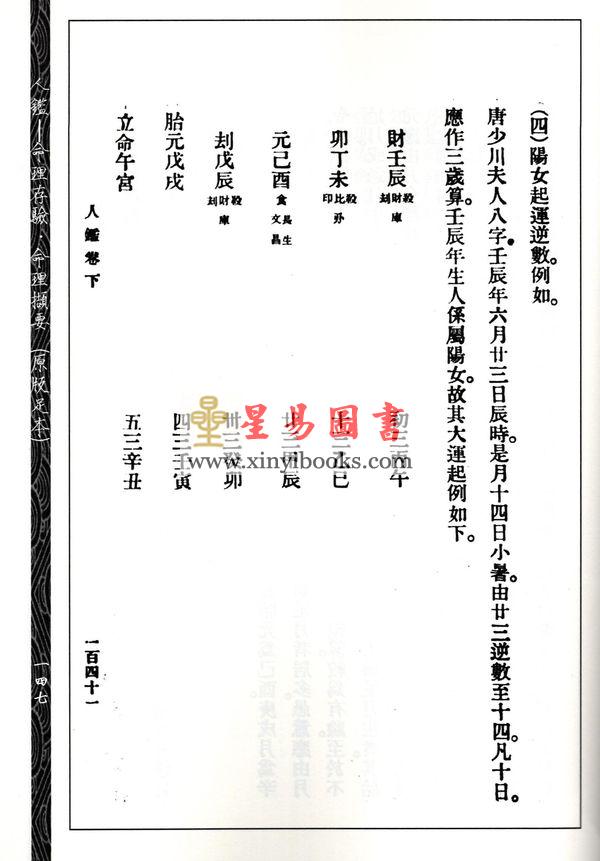 (四)陽女起運逆數。例如。
唐少川夫人八字。壬辰年六月廿三日辰時。是月十四日小暑。由廿三逆數至十四。凡十日。
應作三歲算。壬辰年生人係屬陽女。故其大運起例如下。
財壬辰 刦財殺庫
卯丁未 印比
元己酉 食長生文昌
刦戊辰 刦財殺庫
胎元戊戌
立命午宮
初三丙午
十三乙巳
廿三甲辰
卅三癸卯
四三壬寅
五三辛丑
人鑑卷下
一百四十一
人鑑—命理存驗、命理擷要(原版足本)
一四七
星易圖書
www.xinyibooks.com